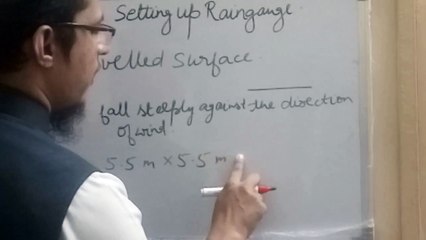 Setting up Raingauge
velled Surface
fall steeply against the direction
of wind
5.5 m × 5.5 m